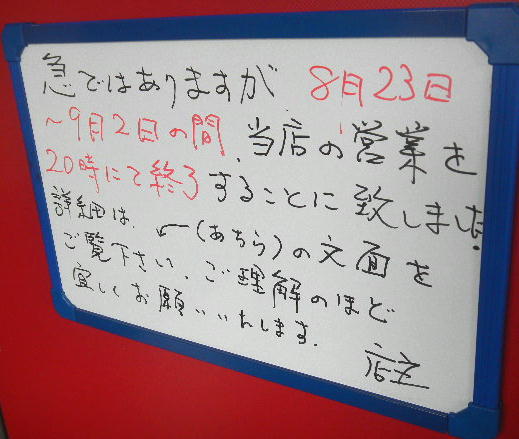 急ではありますが 8月23日
~9月2日の間、当店の営業を
20時にて終了することに致しました。
詳細は、←(あちら)の文面を
ご覧下さい。ご理解のほど
宜しくお願いいたします。
店主